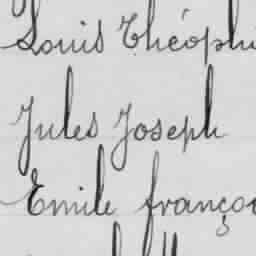 Louis Théophi
Jules Joseph
Emile françoi